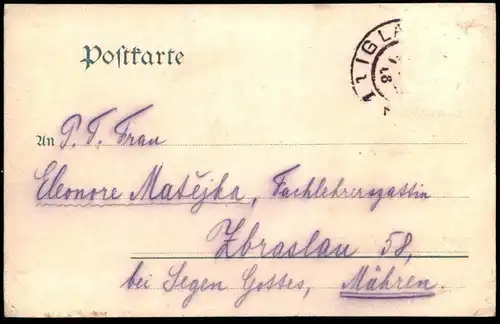 Postkarte
IGLA
An P. T. Frau
Eleonore Matějka, Fachlehrersgattin
Zbraslau 58,
bei Segen Gottes, Mähren.